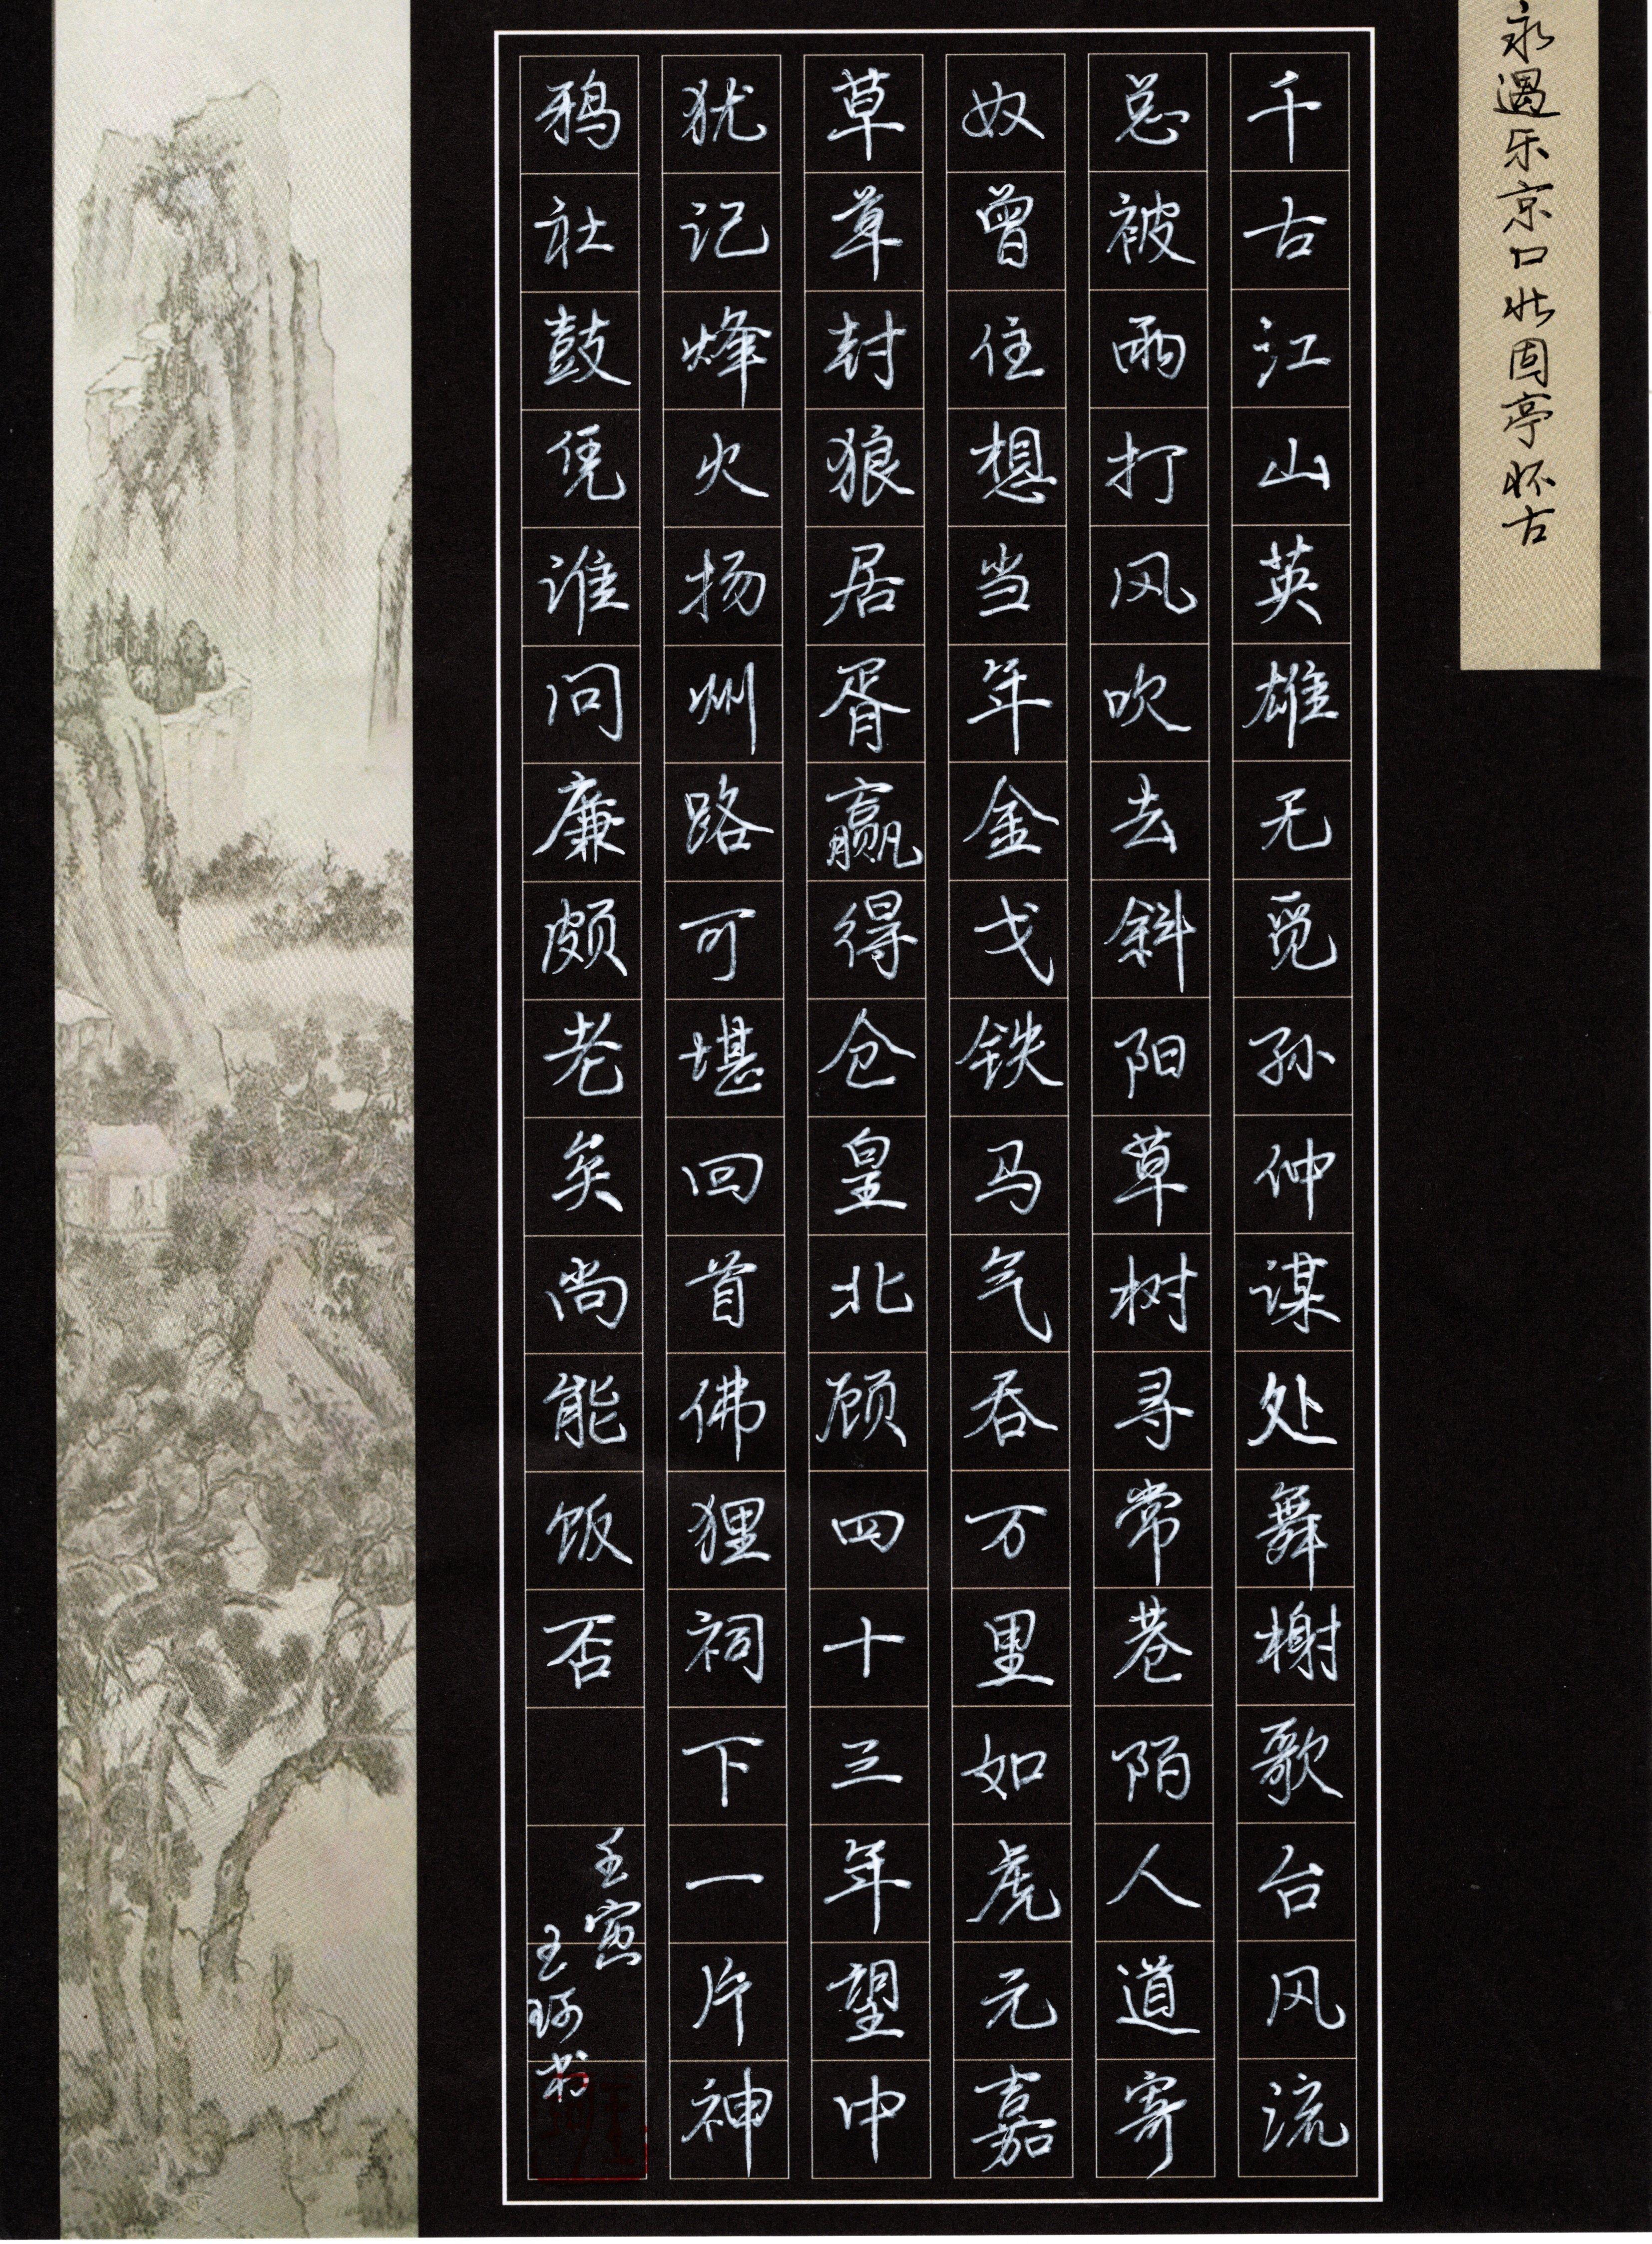 永遇乐京口北固亭怀古
千古江山英雄无觅孙仲谋处舞榭歌台风流
总被雨打风吹去斜阳草树寻常巷陌人道寄
奴曾住想当年金戈铁马气吞万里如虎元嘉
草草封狼居胥赢得仓皇北顾四十三年望中
犹记烽火扬州路可堪回首佛狸祠下一片神
鸦社鼓凭谁问廉颇老矣尚能饭否
壬寅
王珂书